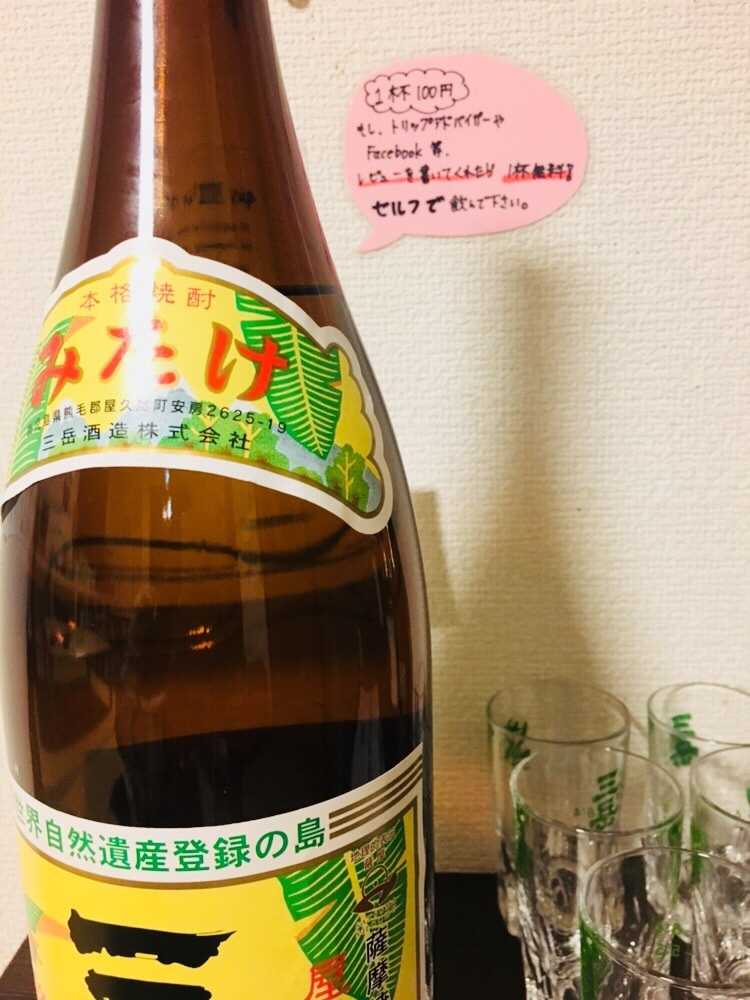 1杯100円
もし、トリップアドバイザーや
Facebook 等、
レビューを書いてくれたら 1杯無料!
セルフで飲んで下さい。
本格焼酎
みたけ
島県熊毛郡屋久島町安房2625-19
三岳酒造株式会社
世界自然遺産登録の島
三
屋
薩摩
三岳
三岳